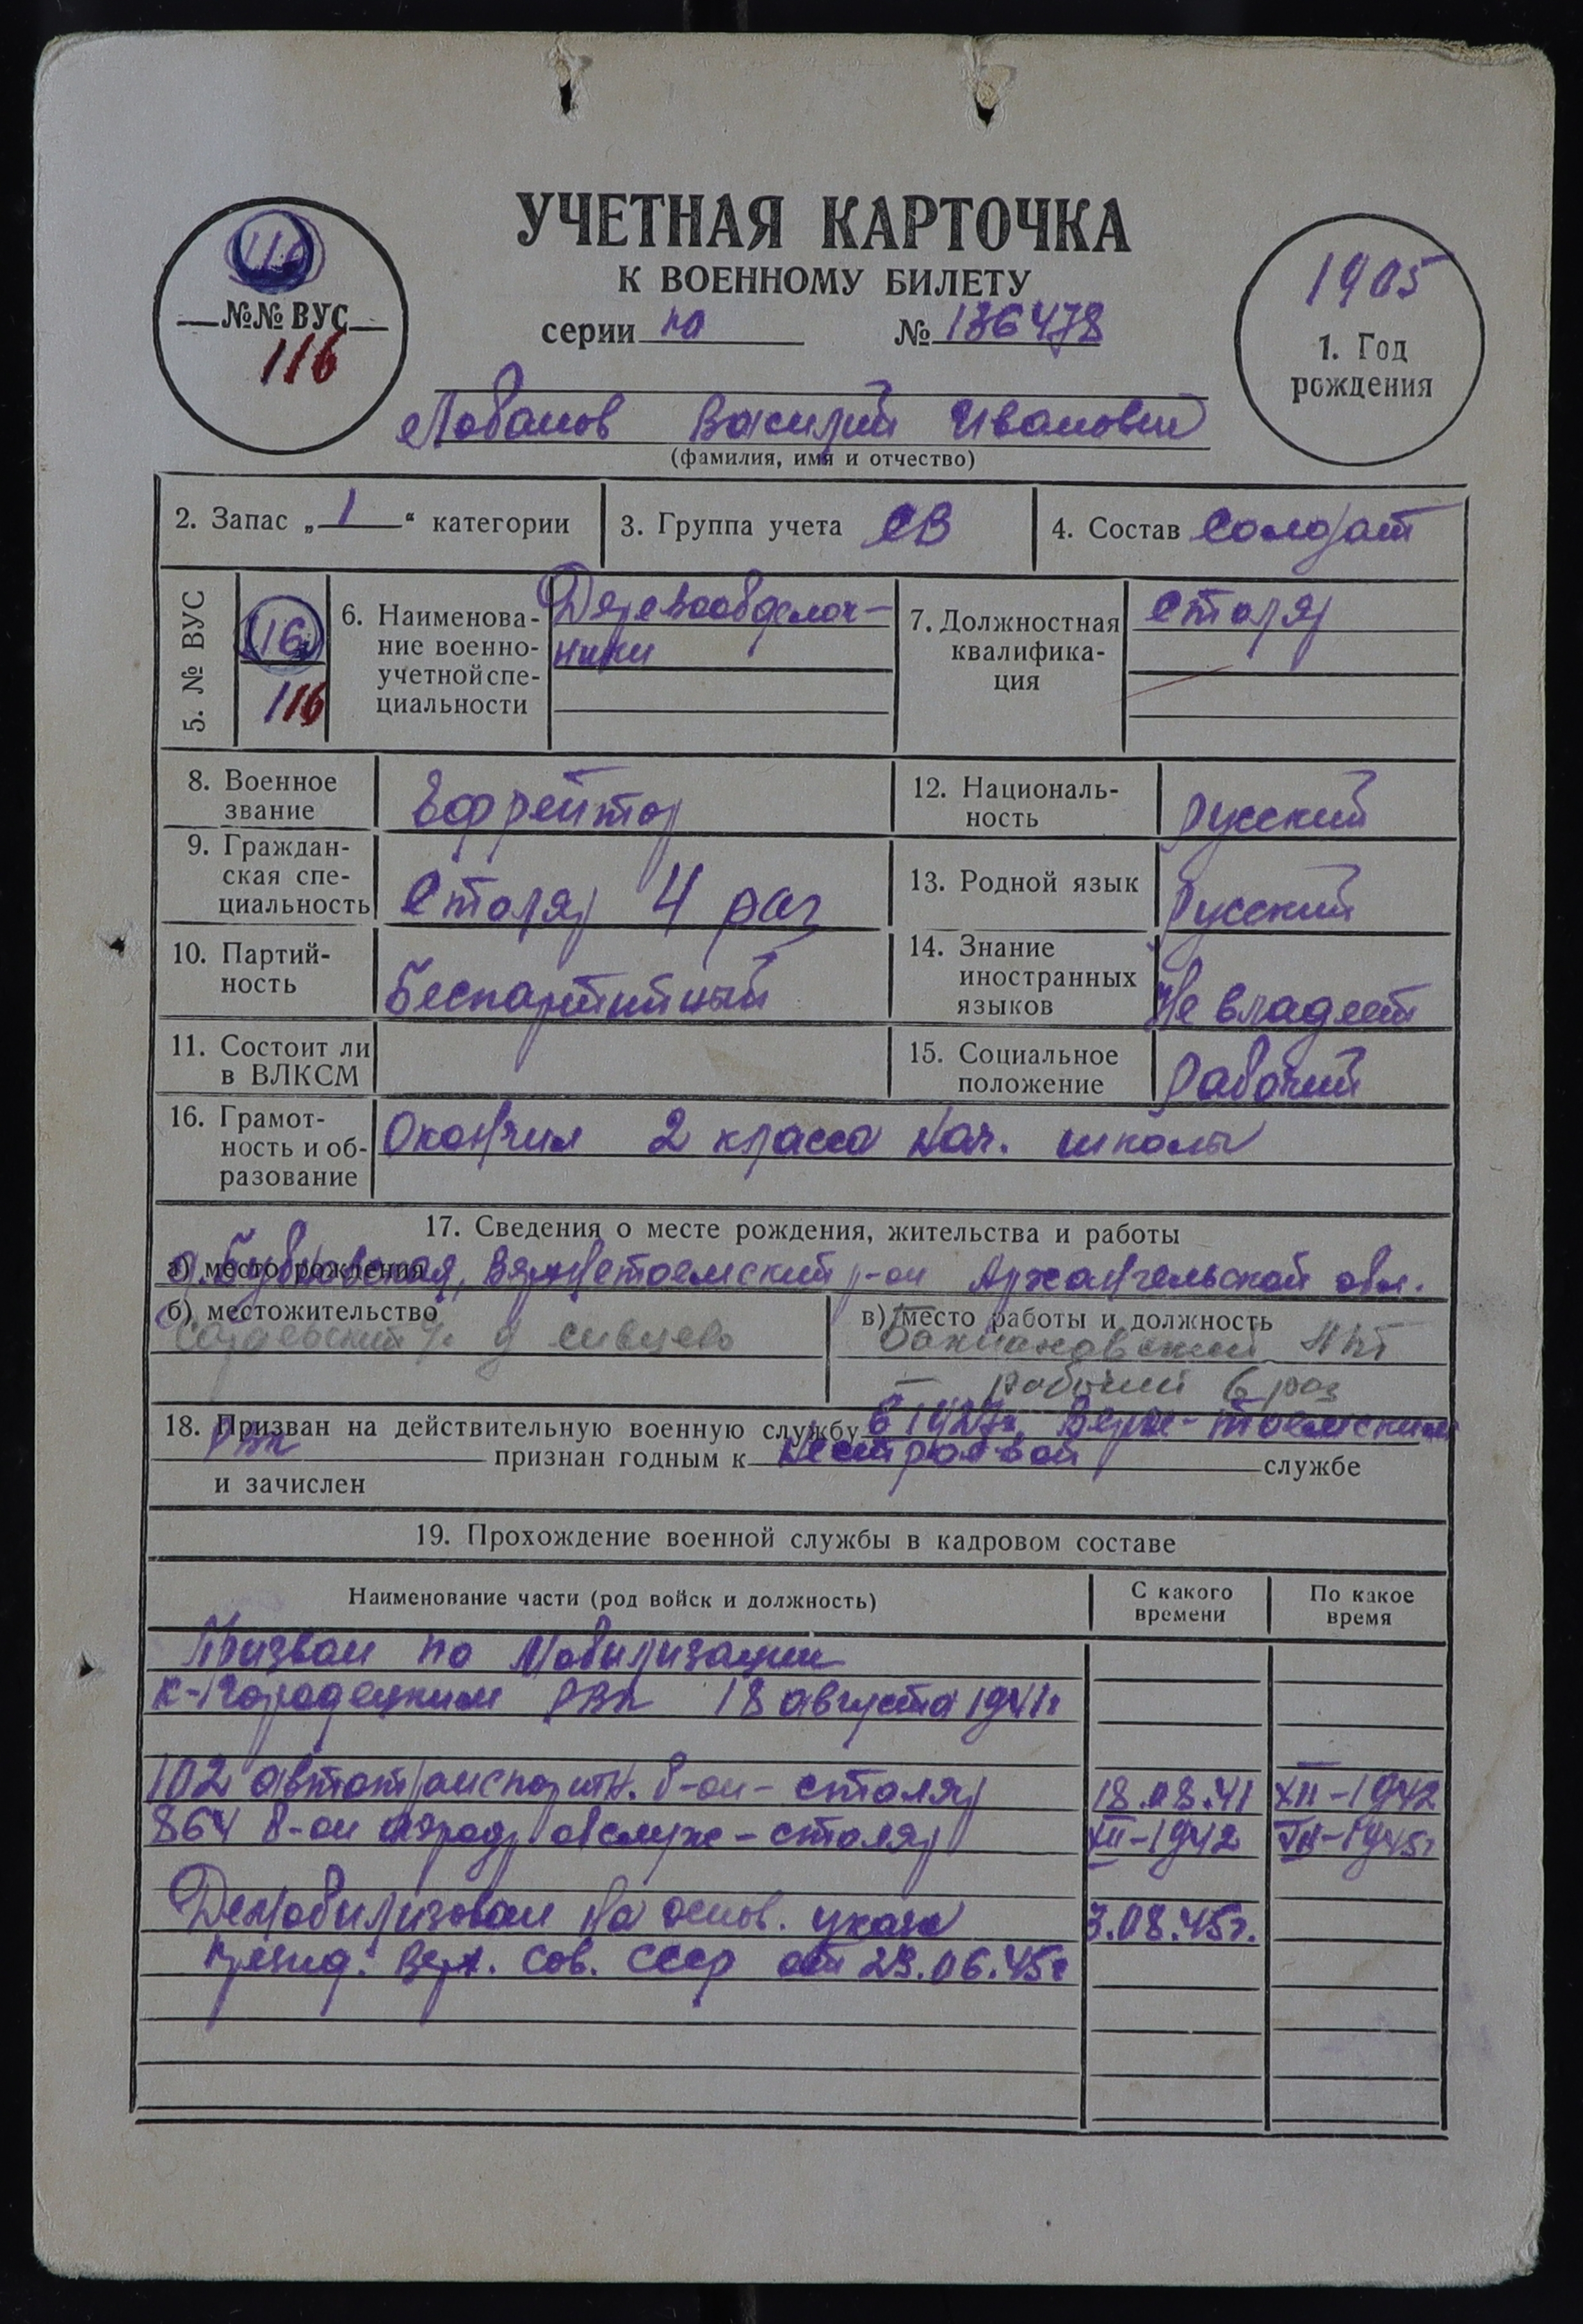 УЧЕТНАЯ КАРТОЧКА
К ВОЕННОМУ БИЛЕТУ
серии на № 136478
116
№№ ВУС
116
1905
1. Год
рождения
Лобанов Василий Иванович
(фамилия, имя и отчество)
2. Запас „1“ категории
3. Группа учета СВ
4. Состав Солдат
5. № ВУС
116
116
6. Наименова-
ние военно-
учетной спе-
циальности
Деревообделоч-
ники
7. Должностная
квалифика-
ция
столяр
8. Военное
звание
Ефрейтор
12. Националь-
ность
русский
9. Граждан-
ская спе-
циальность
Столяр 4 раз
13. Родной язык
русский
10. Партий-
ность
Беспартийный
14. Знание
иностранных
языков
Не владеет
11. Состоит ли
в ВЛКСМ
15. Социальное
положение
рабочий
16. Грамот-
ность и об-
разование
Окончил 2 класса нач. школы
17. Сведения о месте рождения, жительства и работы
а) место рождения
д. Верхнетоемский р-он Архангельской обл.
б) местожительство
д
в) место работы и должность
рабочий 6 раз
18. Призван на действительную военную службу в 1927г. Верх-Тоемским
РВК признан годным к нестроевой службе
и зачислен
19. Прохождение военной службы в кадровом составе
Наименование части (род войск и должность)
С какого
времени
По какое
время
Призван по Мобилизации
РВК 18 августа 1941г
102 автотранспортн. б-он - столяр 18.08.41 XII-1942
864 б-он аэродр обслуж - столяр XII-1942 VIII-1945г
Демобилизован на основ. указа 3.08.45г.
презид. Верх. Сов. СССР от 23.06.45г